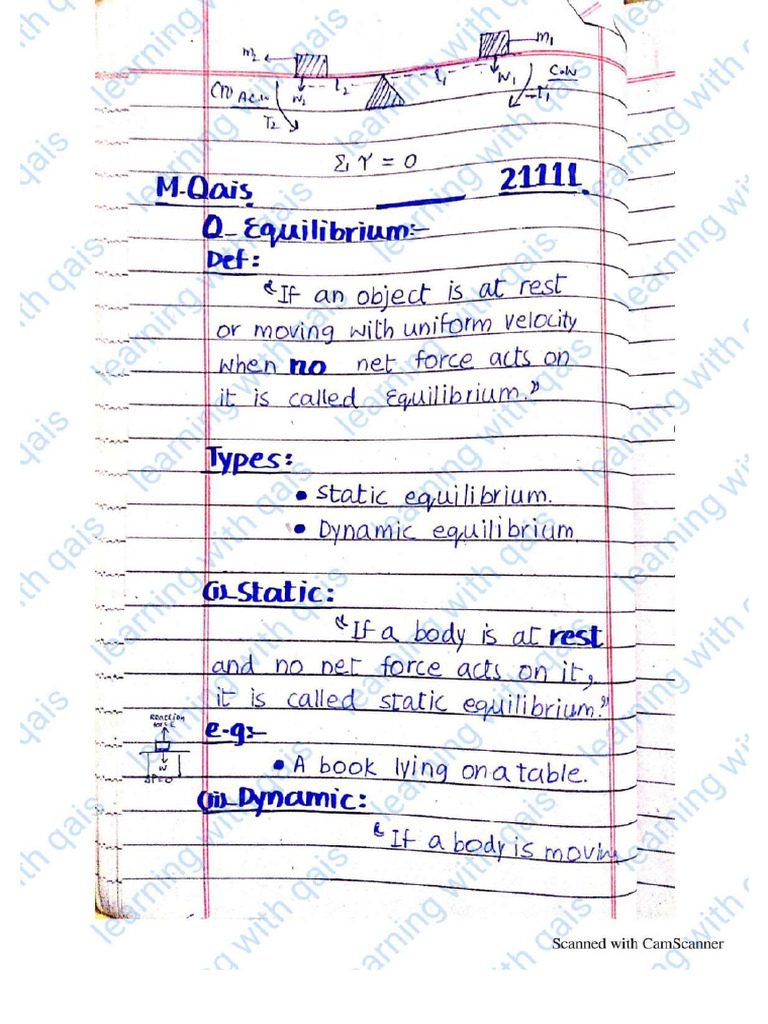 m₂
m₁
l₂
l₁
W₂
W₁
A.C.W
C.W
T₂
T₁
Σ τ = 0
M-Qais.
21111.
Q- Equilibrium:-
Def:
"If an object is at rest
or moving with uniform velocity
when no net force acts on
it is called Equilibrium."
Types:
• Static equilibrium.
• Dynamic equilibrium.
(i)- Static:
"If a body is at rest
and no net force acts on it,
it is called static equilibrium."
Reaction
force
W
e-g:-
• A book lying on a table.
(ii)- Dynamic:
"If a body is moving
learning with qais
Scanned with CamScanner